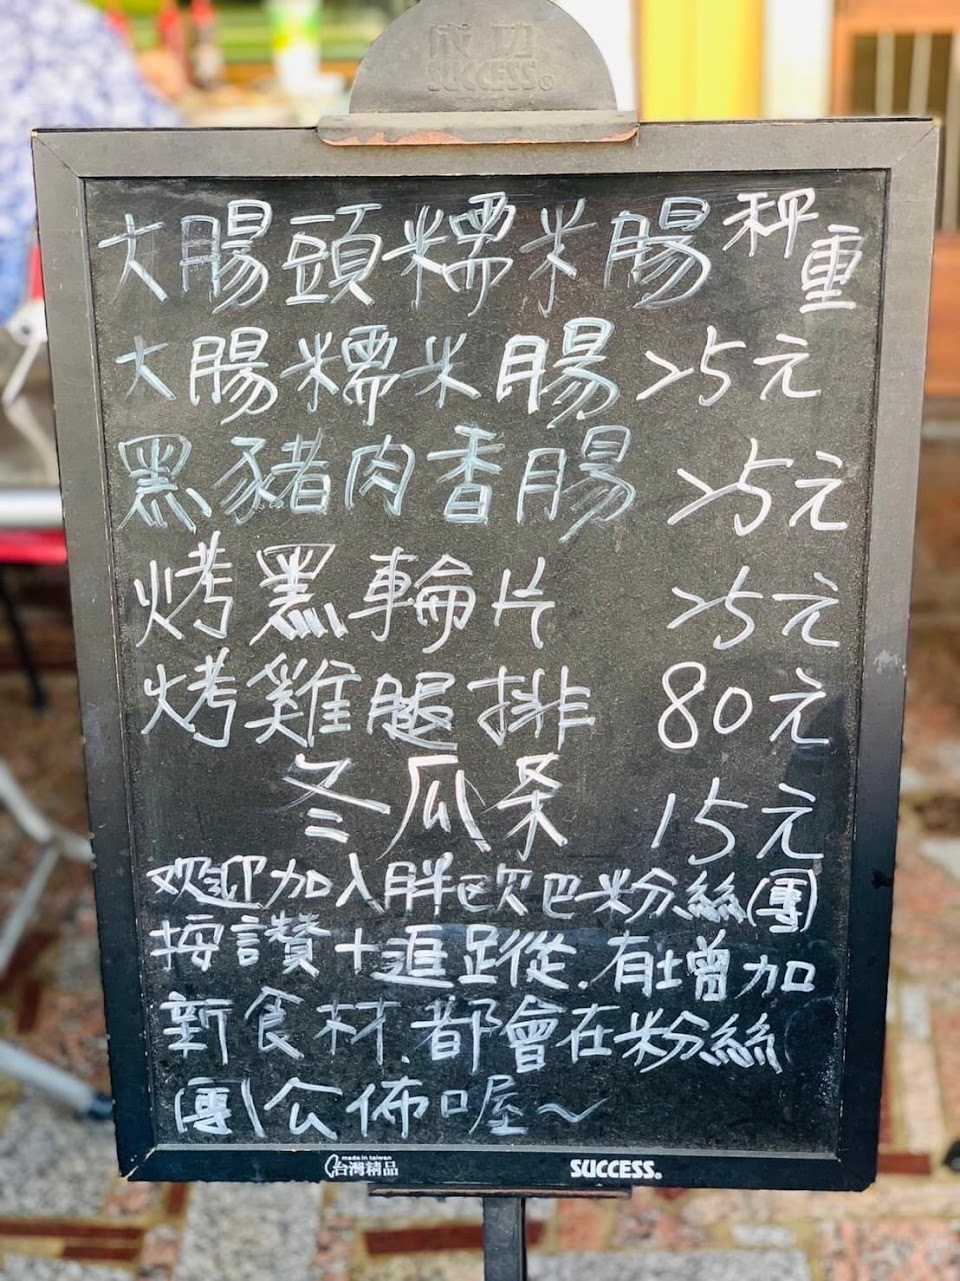 成功
SUCCESS®
大腸頭糯米腸 秤重
大腸糯米腸 >5元
黑豬肉香腸 >5元
烤黑輪片 >5元
烤雞腿排 80元
冬瓜条 15元
欢迎加入胖欧巴粉絲團
按讚+追蹤.有增加
新食材.都會在粉絲
團公佈喔~
made in taiwan
台灣精品
SUCCESS®